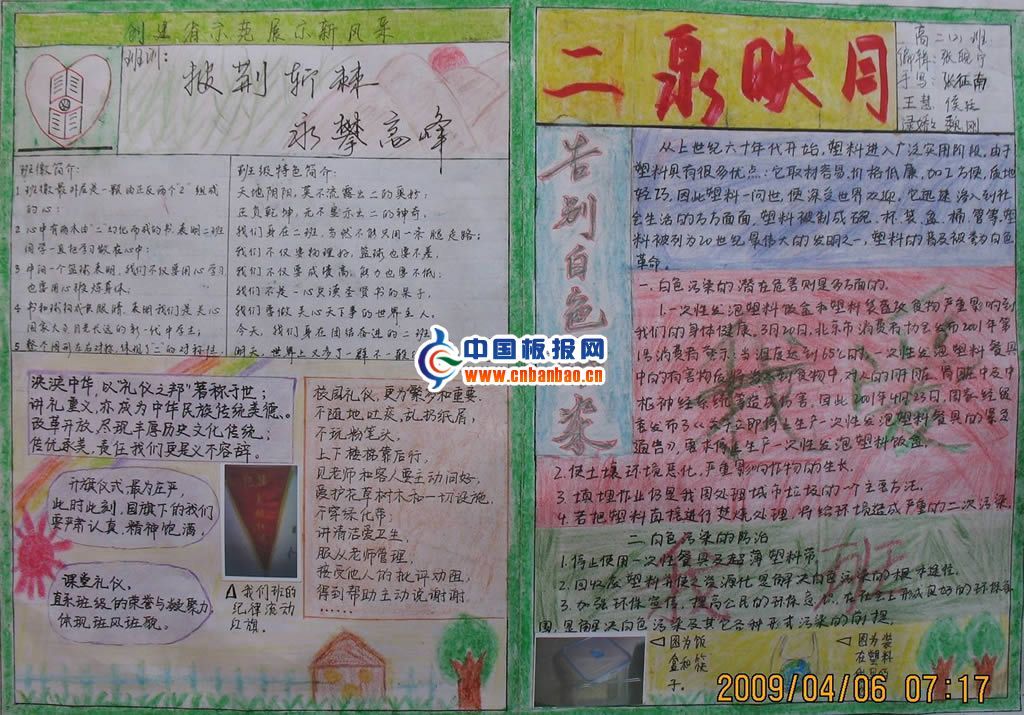 创建省示范展示新风采
班训:
披荆斩棘
永攀高峰
班徽简介:
1 班徽最外在是一颗由正反两个“2”组成
的心;
2 心中有两本由“二”幻化而成的书,表明二班
同学一直把学习放在心中;
3 中间一个篮球表明,我们不仅要用心学习
也要用心锻炼身体;
4 书和球构成一只眼睛,表明我们是关心
国家大事目光长远的新一代中学生;
5 整个图案左右对称,体现了“二”的对称性
班级特色简介:
天地阴阳,莫不流露出二的奥妙;
正负乾坤,无不显示出二的神奇,
我们身在二班,当然不能只用一条腿走路;
我们不仅要物理好,篮球也要不差,
我们不仅要成绩高,能力也要不低;
我们不是一心只读圣贤书的呆子,
我们要做关心天下事的世界主人,
今天,我们身在团结奋进的二班
明天,世界上又多了一群不一般的
泱泱中华,以“礼仪之邦”著称于世;
讲礼重义,亦成为中华民族传统美德。
改革开放,尽现丰厚历史文化传统;
传优承美,责任我们更是义不容辞。
升旗仪式最为庄严,
此时此刻,国旗下的我们
要严肃认真,精神饱满,
课堂礼仪,
直系班级的荣誉与凝聚力,
体现班风班貌。
我们班的
纪律流动
红旗。
校园礼仪,更为繁多和重要.
不随地吐痰,乱扔纸屑,
不玩粉笔头,
上下楼梯靠右行,
见老师和客人要主动问好,
爱护花草树木和一切设施,
不穿绿化带,
讲清洁爱卫生,
服从老师管理,
接受他人的批评劝阻,
得到帮助主动说谢谢.
……
二泉映月
高二(2)班
编辑:张晓宁
手写:张征南
王慧
魏刚
告别白色
染
从上世纪六十年代开始,塑料进入广泛实用阶段,由于
塑料具有很多优点:它取材容易,价格低廉,加工方便,质地
轻巧,因此塑料一问世,便深受世界欢迎,它迅速渗入到社
会生活的方方面面,塑料被制成碗、杯、袋、盆、桶、管等,塑
料被列为20世纪最伟大的发明之一,塑料的普及被誉为白色
革命。
一.白色污染的潜在危害则是多方面的.
1.一次性发泡塑料饭盒和塑料袋盛装食物严重影响到
我们的身体健康.3月20日,北京市消费者协会发布2001年第
1号消费者警示:当温度达到65℃时,一次性发泡塑料餐具
中的有害物质将渗入到食物中,对人的肝脏、肾脏及中
枢神经系统等造成伤害,因此2001年4月23日,国家经贸
委发布了《关于立即停止生产一次性发泡塑料餐具的紧急
通告》,要求停止生产一次性发泡塑料饭盒.
2.使土壤环境恶化,严重影响作物的生长.
3.填埋作业仍是我国处理城市垃圾的一个主要方法.
4.若把塑料直接进行焚烧处理,将给环境造成严重的二次污染.
二.白色污染的防治
1.停止使用一次性餐具及超薄塑料袋.
2.回收废塑料并使之资源化是解决白色污染的根本途径.
3.加强环保宣传,提高公民的环保意识,在社会上形成良好的环保氛
围,是解决白色污染及其它各种形式污染的前提.
图为饭
盒和筷
子.
图为装
在塑料
中国板报网
www.cnbanbao.cn
2009/04/06 07:17